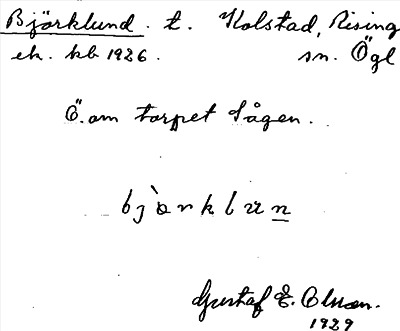 Björklund. t. Kolstad, Rising
ek. kb 1926. sn. Ögl
Ö. om torpet Sågen.
bjὸrklun
Gustaf E. Olsson.
1929